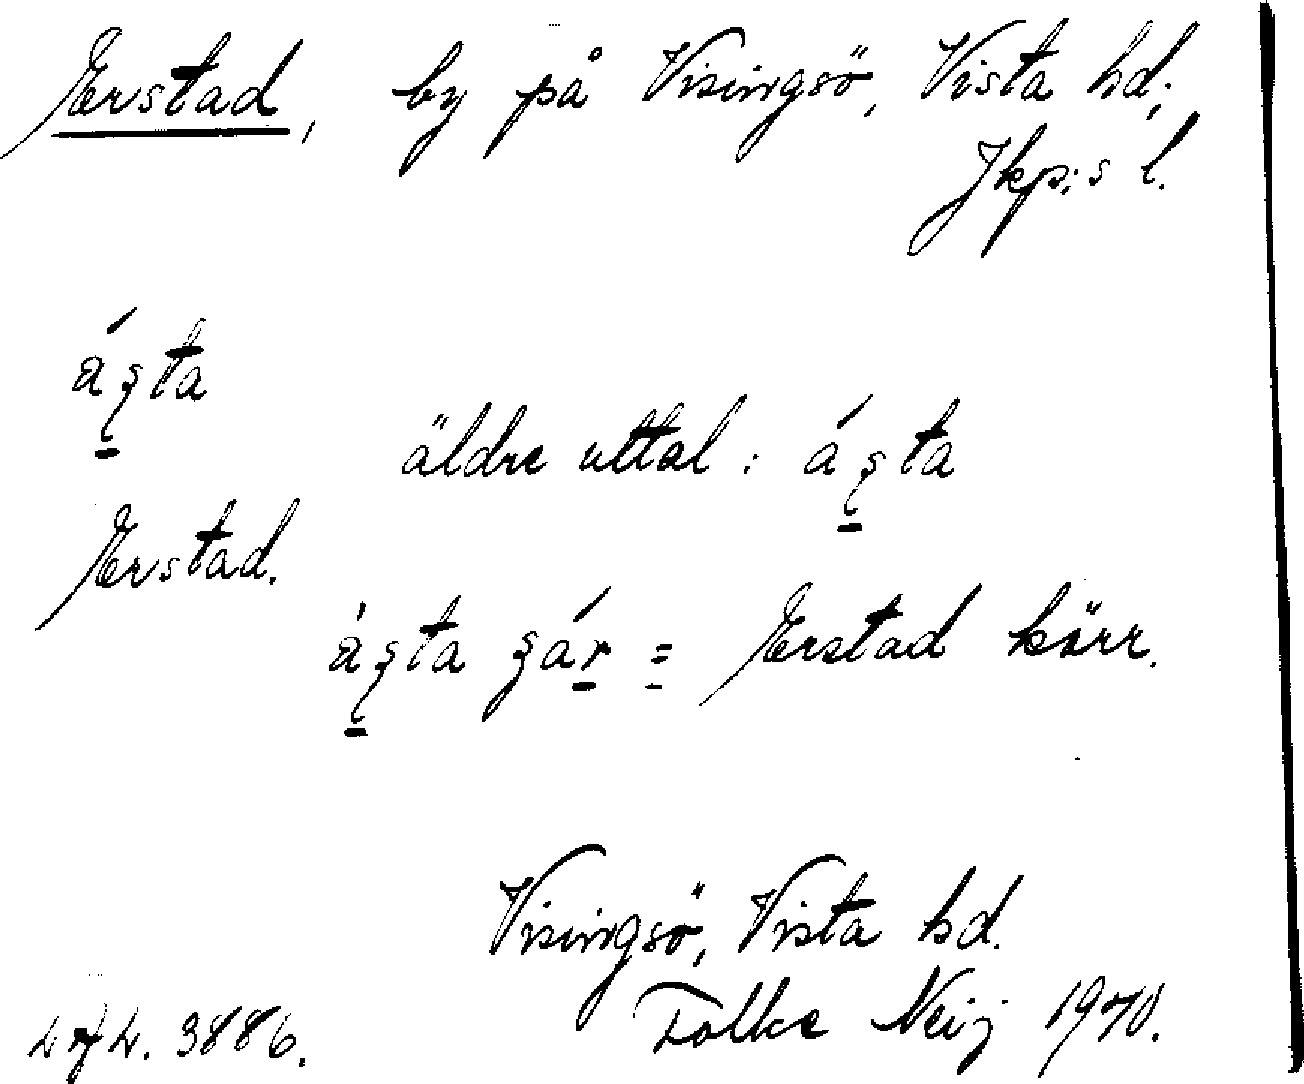 Erstad, by på Visingsö, Vista hd;
Jkp:s l.
áṣta
äldre uttal: áṣta
Erstad.
áṣta ʂár = Erstad kärr.
Visingsö, Vista hd.
Folke Neij 1970.
3886.